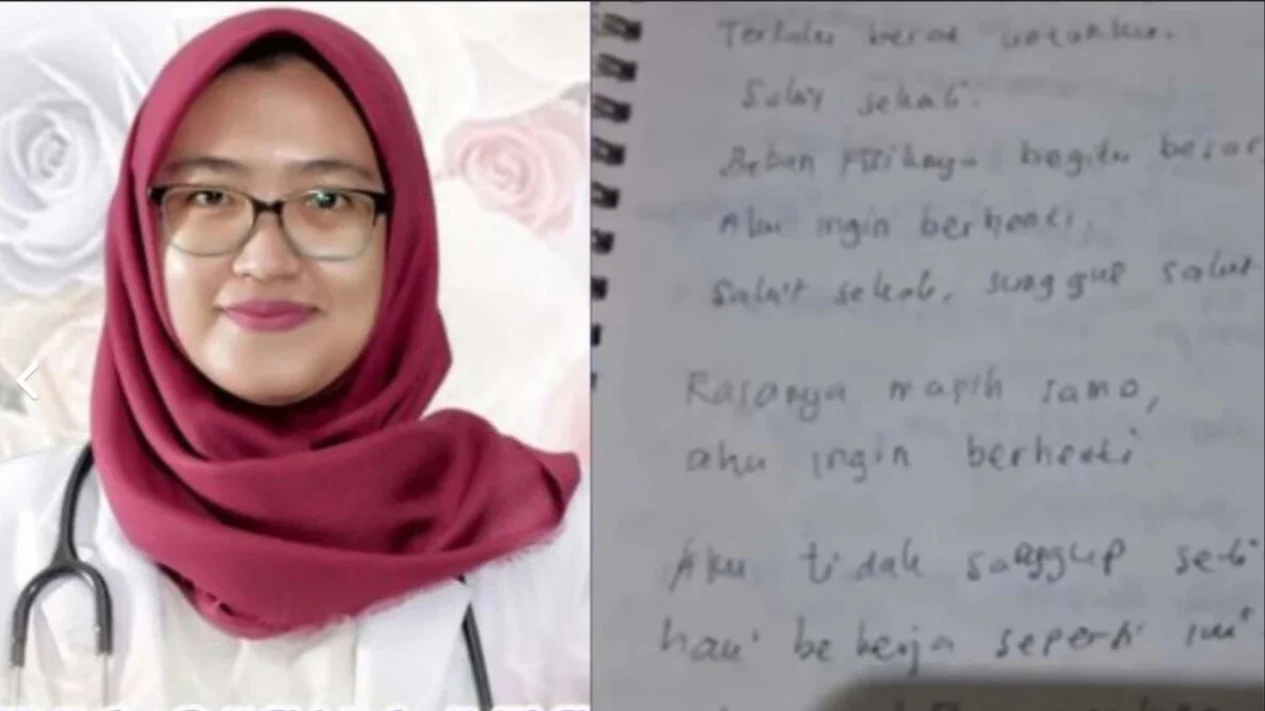 Terlalu berat untukku.
Sakit sekali.
Beban fisiknya begitu besar,
Aku ingin berhenti.
Sakit sekali, sungguh sakit
Rasanya masih sama,
aku ingin berhenti
Aku tidak sanggup
hari bekerja seperti ini